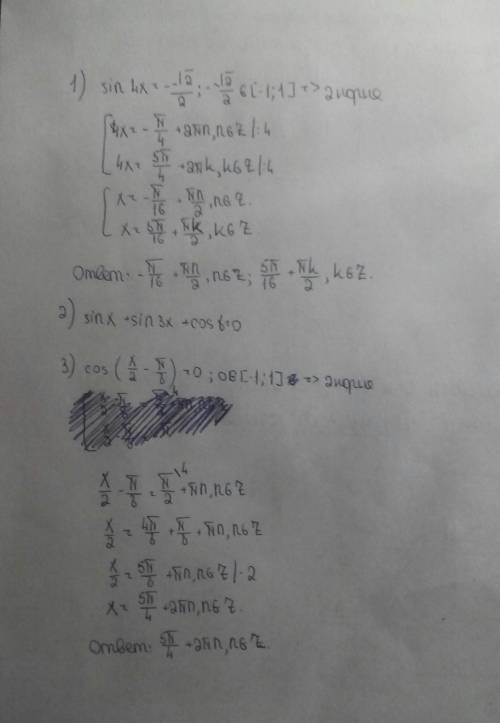 1) sin 4x = -√2/2 ; -√2/2 ∈ [-1;1] =>
[ 4x = -π/4 + 2πn, n∈Z /:4
4x = 5π/4 + 2πk, k∈Z /:4
[ x = -π/16 + πn/2, n∈Z.
x = 5π/16 + πk/2, k∈Z
Ответ: -π/16 + πn/2, n∈Z; 5π/16 + πk/2, k∈Z.
2) sinx + sin3x + cos =0
3) cos(x/2 - π/8) = 0 ; 0∈[-1;1] =>
x/2 - π/8 = π/2 \4 + πn, n∈Z
x/2 = 4π/8 + π/8 + πn, n∈Z
x/2 = 5π/8 + πn, n∈Z /·2
x = 5π/4 + 2πn, n∈Z.
Ответ: 5π/4 + 2πn, n∈Z.